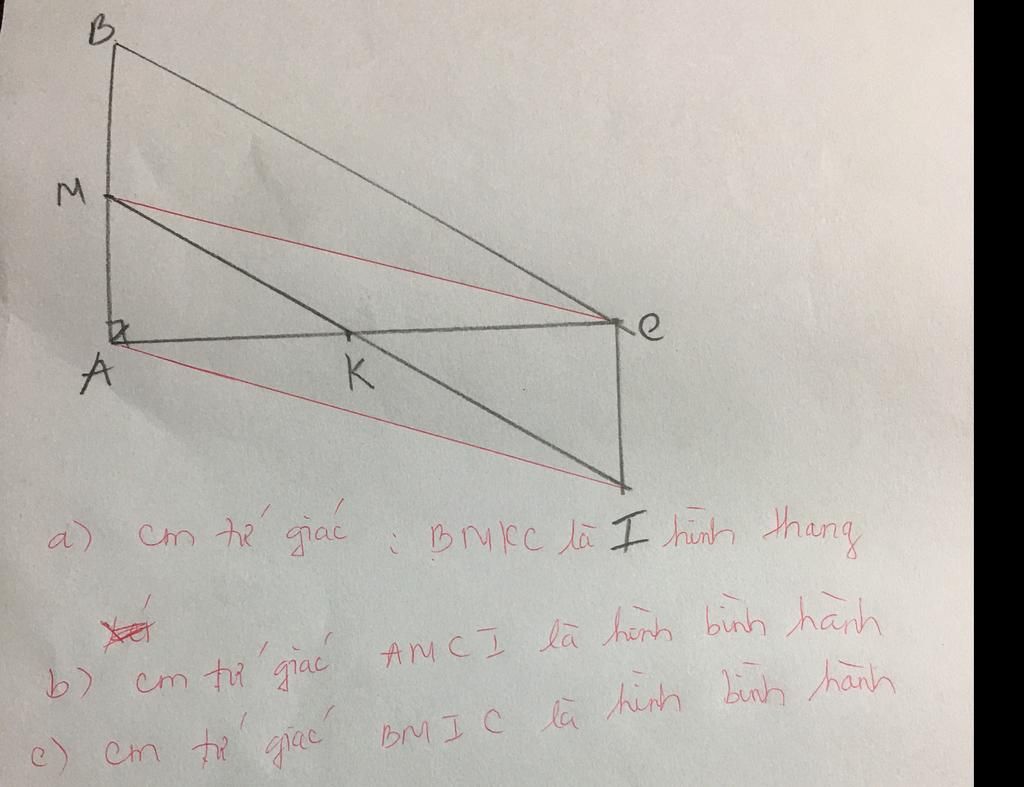 B
M
A
K
C
I
a) cm tứ giác : BMKC là hình thang
b) cm tứ giác AMCI là hình bình hành
c) cm tứ giác BMIC là hình bình hành